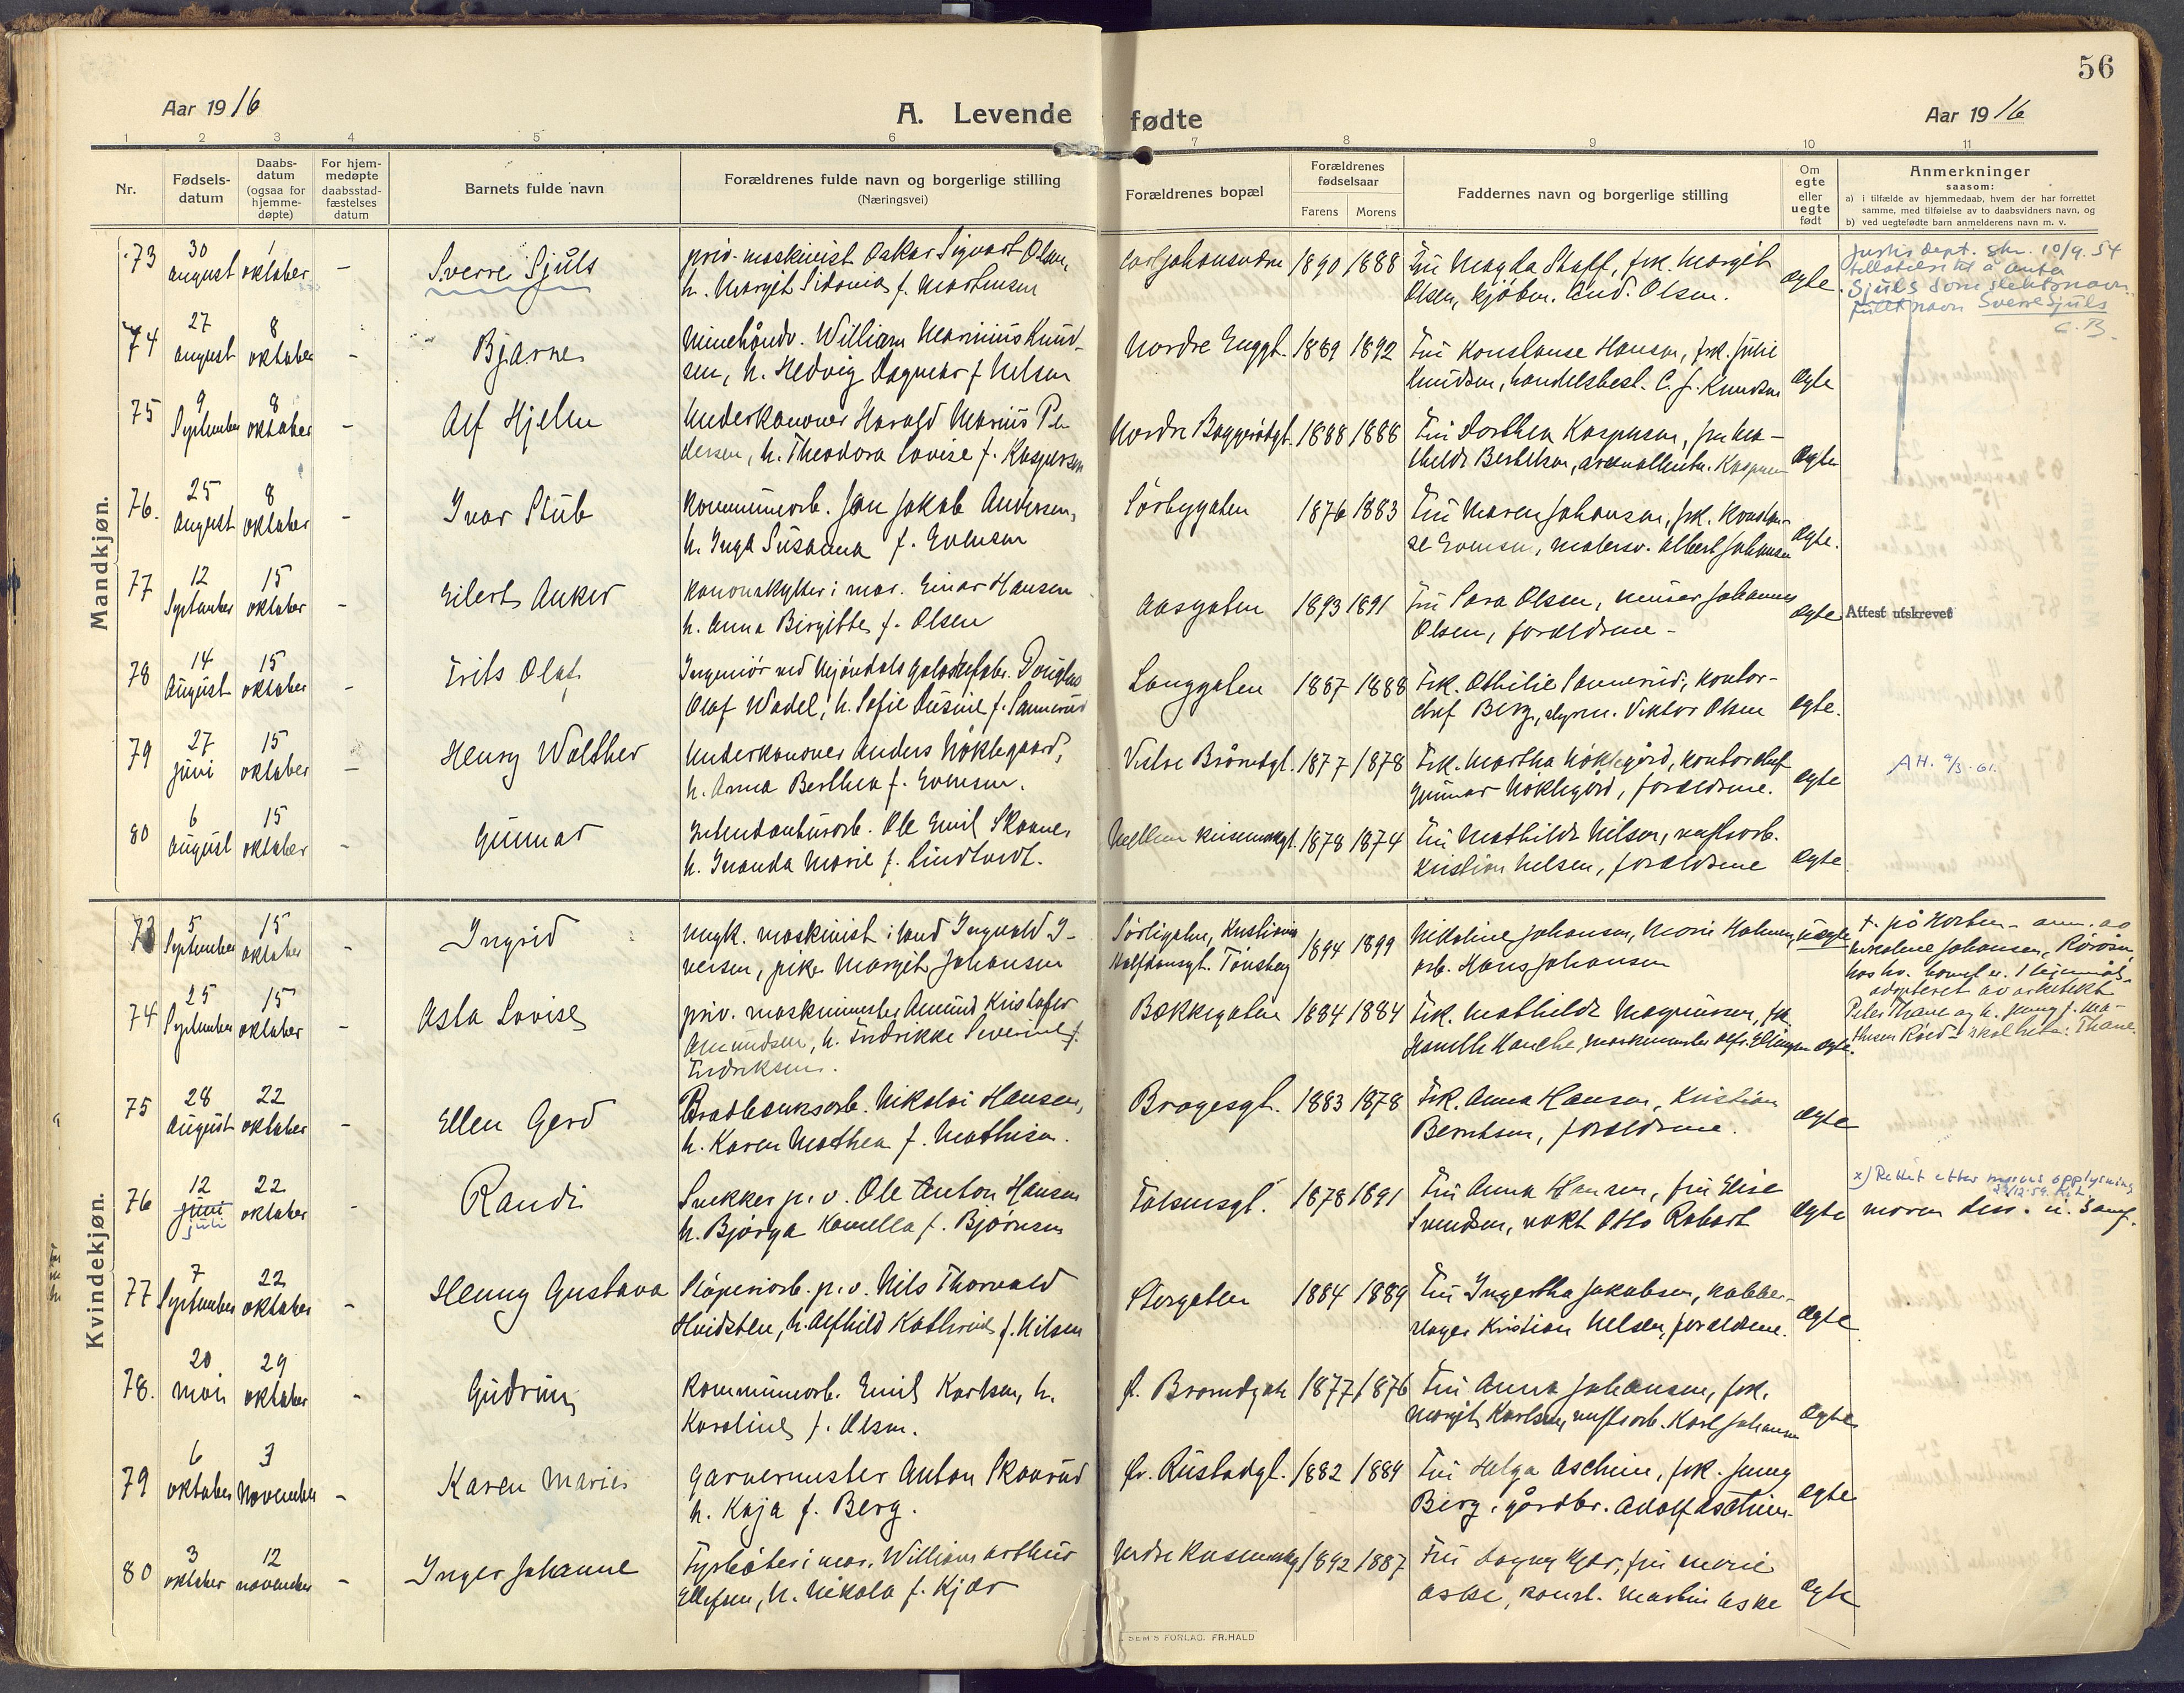 56
Aar 1916
A. Levende fødte
Aar 1916
1 2 3 4 5 6 7 8 9 10 11
Nr.
Fødsels-
datum
Daabs-
datum
(ogsaa for
hjemme-
døpte)
For hjem-
medøpte
daabsstad-
fæstelses
datum
Barnets fulde navn
Forældrenes fulde navn og borgerlige stilling
(Næringsvei)
Forældrenes bopæl
Forældrenes
fødselsaar
Farens Morens
Faddernes navn og borgerlige stilling
Om
egte
eller
uegte
født
Anmerkninger
saasom:
a) i tilfælde av hjemmedaab, hvem der har forrettet
samme, med tilføielse av to daabsvidners navn, og
b) ved uegtefødte barn anmelderens navn m. v.
Mandkjøn.
73 30 august 1 oktober –
Sverre Sjuls
priv. maskinist Oskar Sigvart Olsen,
h. Margit Sidonia f. Mortensen
1890 1888
Fru Magda Staff, frk. Margit
Olsen, kjøbm. And. Olsen.
egte.
Justisdept. skr. 10/9.54
tillatelse til å anta
Sjuls som slektsnavn.
fullt navn Sverre Sjuls
C.B.
74 27 august 8 oktober –
Bjarne
Minehåndv. William Marinius Knud-
sen, h. Hedvig Dagmar f. Nilsen
Nordre Enggt. 1889 1892
Fru Konstanse Hansen, frk. Julie
Knudsen, handelsbest. C. J. Knudsen
egte
75 9 September 8 oktober –
Alf Hjelm
Underkanoner Harald Marius Pe-
dersen, h. Theodora Lovise f. Kaspersen
Nordre Baggerødgt. 1888 1888
Fru Dorthea Kaspersen, fru Ma-
thilde Bertelsen, Kaspersen
egte
76. 25 august 8 oktober –
Ivar Stub
Kommunearb. Jan Jakob Andersen,
h. Inga Susanna f. Evensen
Sørbygaten 1876 1883
Fru Maren Johansen, frk. Konstan-
se Evensen, matersv. Albert Johansen
egte.
77 12 September 15 oktober –
Eilert Anker
Kanonskytter i mar. Einar Hansen
h. Anna Birgitte f. Olsen
Aasgaten 1893 1891
Fru Sara Olsen, murer Johannes
Olsen, forældrene –
egte
Attest utskrevet
78 14 August 15 oktober –
Frits Olaf
Ingeniør ved Douglas
Olaf Wadel, h. Sofie f. Sannerud
Langgaten 1887 1888
Frk. Othilie Sannerud, kontor-
chef Berg, Viktor Olsen
egte.
79 27 juni 15 oktober –
Henry Walther
Underkanoner Anders Nøklegaard,
h. Anna Berthea f. Evensen.
Vestre Brårødgt. 1877 1878
Frk. Martha Nøklegård, kontorchef
Gunnar Nøklegård, forældrene.
egte
AH. 9/3-61.
80 6 august 15 oktober –
Gunnar
Intendanturarb. Ole Emil Skaane,
h. Inanda Marie f. Lindtvedt.
1878 1874
Fru Mathilde Nilsen, verftsarb.
Kristian Nilsen, forældrene
egte
Kvindekjøn.
73 5 September 15 oktober –
Ingrid
Ungk. maskinist i land Ingvald I-
versen, pike Margit Johansen
Sørligaten, Kristiania
Halfdansgt. Tønsberg
1894 1899
Nikoline Johansen, Marie Holmen,
arb. Hans Johansen
uegte
f. på Horten – anm. av
Nikoline Johansen,
adopteret av arkitekt
Peter Thane og h. Jenny f. Ma-
thisen Røed – skal hete: Thane.
74 25 September 15 oktober –
Asta Lovise
priv. maskinmester Amund Kristofer
Amundsen, h. Fredrikke Severine f.
Fredriksen.
Bakkegaten 1884 1884
Frk. Mathilde Magnussen, frk.
Hanche, maskinmester Alfr. Ellingsen
egte.
75 28 August 22 oktober –
Ellen Gerd
Nikolai Hansen,
h. Karen Mathea f. Mathisen.
Bragesgt. 1883 1878
Frk. Anna Hansen, Kristian
Berntsen, forældrene.
egte
76 12 juni juli 22 oktober –
Randi
Snekker p. v. Ole Anton Hansen
h. Bjørga Kamilla f. Bjørnsen
Falsensgt. 1878 1891
Fru Anna Hansen, fru Elise
Svendsen, vakt Otto Robert
egte
x) Rettet etter morens opplysning
29/12.59.
moren diss. u. samf.
77 7 September 22 oktober –
Henny Gustava
Støperiarb. p. v. Nils Thorvald
Hvidsten, h. Alfhild Kathrine f. Nilsen
Storgaten 1884 1889
Fru Ingertha Jakobsen, kobber-
slager Kristian Nilsen, forældrene.
egte
78. 20 mai 29 oktober –
Gudrun
Kommunearb. Emil Karlsen, h.
Karoline f. Olsen.
1877 1876
Fru Anna Johansen, frk.
Margit Karlsen, verftsarb. Karl Johansen
egte
79 6 oktober 3 November –
Karen Marie
Garvermester Anton Skaarud
h. Kaja f. Berg.
Øv. Rustadgt. 1882 1884
Fru Helga Aschim, frk. Jenny
Berg, gårdbr. Adolf Aschim
egte
80 3 oktober 12 november –
Inger Johanne
Fyrbøter i mar. William Arthur
Ellefsen, h. Nikola f. Kjær
1892 1887
Fru Dagny Kjær, fru Marie
Aske, konst. Martin Aske
egte
SEM'S FORLAG. FR. HALD